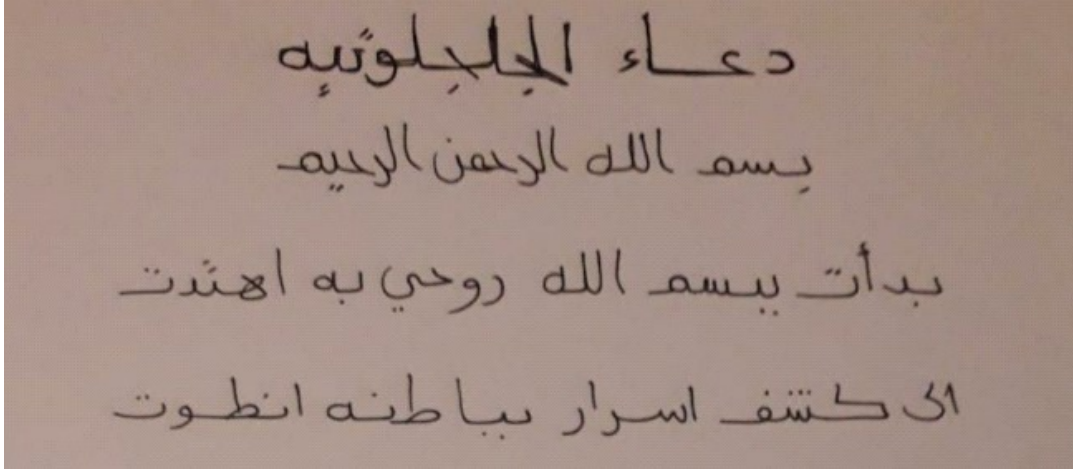 دعاء الجلجلوتيه
بسم الله الرحمن الرحيم
بدأت ببسم الله روحي به اهتدت
الى كشف اسرار بباطنه انطوت